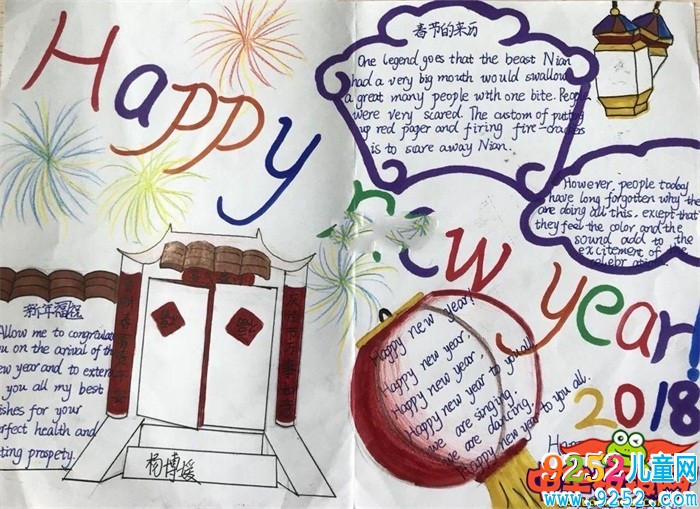 Happy
new year!
2018
春节的来历
One legend goes that the beast Nian
had a very big mouth would swallow
a great many people with one bite. People
were very scared. The custom of putting
up red paper and firing fire-crackers
is to scare away Nian.
However, people today
have long forgotten why the
are doing all this, except that
they feel the color and the
sound add to the
excitement of the
celebration.
新年福
Allow me to congratula
you on the arrival of the
new year and to extend
you all my best
wishes for your
perfect health and
lasting prospety.
杨博媛
Happy new year!
Happy new year,
Happy new year,
Happy new year to you all
we are singing,
we are dancing.
Happy new year to you all.
9252儿童网
www.9252.com